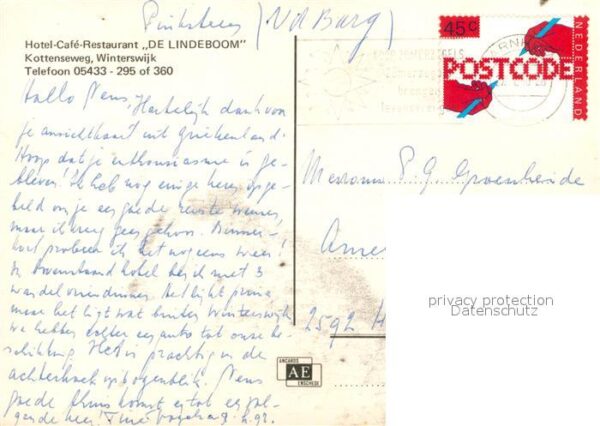 Pinksteren (Vd Burg)
Hotel-Café-Restaurant „DE LINDEBOOM”
Kottenseweg, Winterswijk
Telefoon 05433 - 295 of 360
45c
NEDERLAND
POSTCODE
Hallo Mens, Hartelijk dank voor
je ansichtkaart uit Griekenland.
Hoop dat je enthousiasme is ge-
bleven! Ik heb nog enige keren opge-
beld om je een goede reis te wensen,
maar ik kreeg geen gehoor. Binnen-
kort probeer ik het nog eens weer!
In bovenstaand hotel ben ik met 3
wandelvriendinnen. Het ligt prima
maar het ligt wat buiten Winterswijk
we hebben echter een auto tot onze be-
schikking. Het is prachtig in de
achterhoek op het ogenblik. Mens
goede thuiskomst en tot een vol-
gende keer! Tine
Mevrouw P. G. Groeneheide
2592 H
privacy protection
Datenschutz
ANCARDS
AE
ENSCHEDE